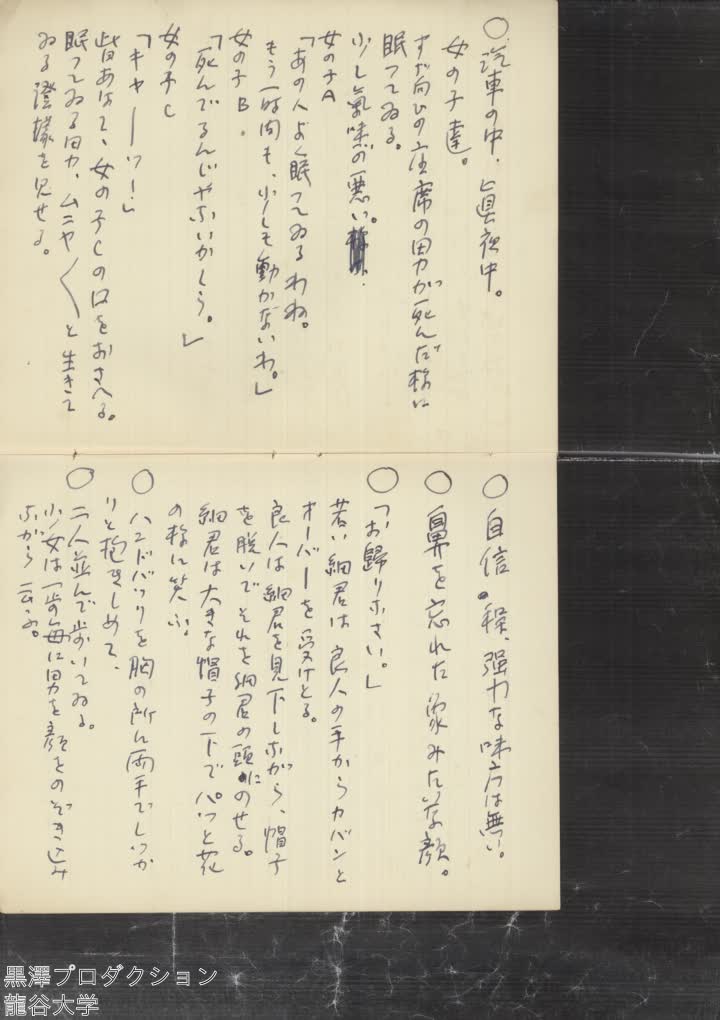 ○汽車の中、眞夜中。
女の子達。
すぢ向ひの座席の男が死んだ様に
眠つてゐる。
少し氣味の悪い。
女の子A
「あの人よく眠つてゐるわね。
もう一時間も、少しも動かないわ。」
女の子B.
「死んでるんじやないかしら。」
女の子C
「キヤーツ！」
皆あはて、女の子Cの口をおさへる。
眠つてゐる男、ムニヤ〳〵と生きて
ゐる證據を見せる。
○自信の様、强力な味方は無い。
○鼻を忘れた象みたいな顔。
○「お歸りなさい。」
若い細君は良人の手からカバンと
オーバーを受けとる。
良人は細君を見下しながら、帽子
を脱いでそれを細君の頭にのせる。
細君は大きな帽子の下でパツと花
の様に笑ふ。
○ハンドバツクを胸の所に両手でしつか
りと抱きしめて、
○二人並んで歩いてゐる。
少女は一歩毎に男を顔をのぞき込み
ながら云ふ。
黒澤プロダクション
龍谷大学